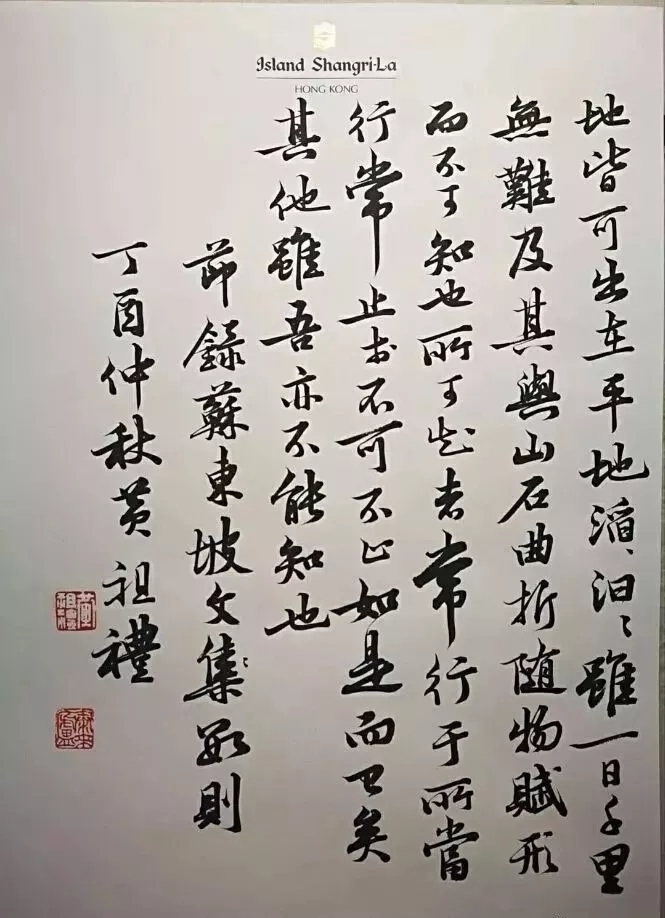 Island Shangri-La
HONG KONG
地皆可出在平地滔〻汩〻雖一日千里
無難及其與山石曲折随物賦形
而不可知也所可知者常行于所當
行常止於不可不止如是而已矣
其他雖吾亦不能知也
節錄蘇東坡文集數則
丁酉仲秋黃祖禮